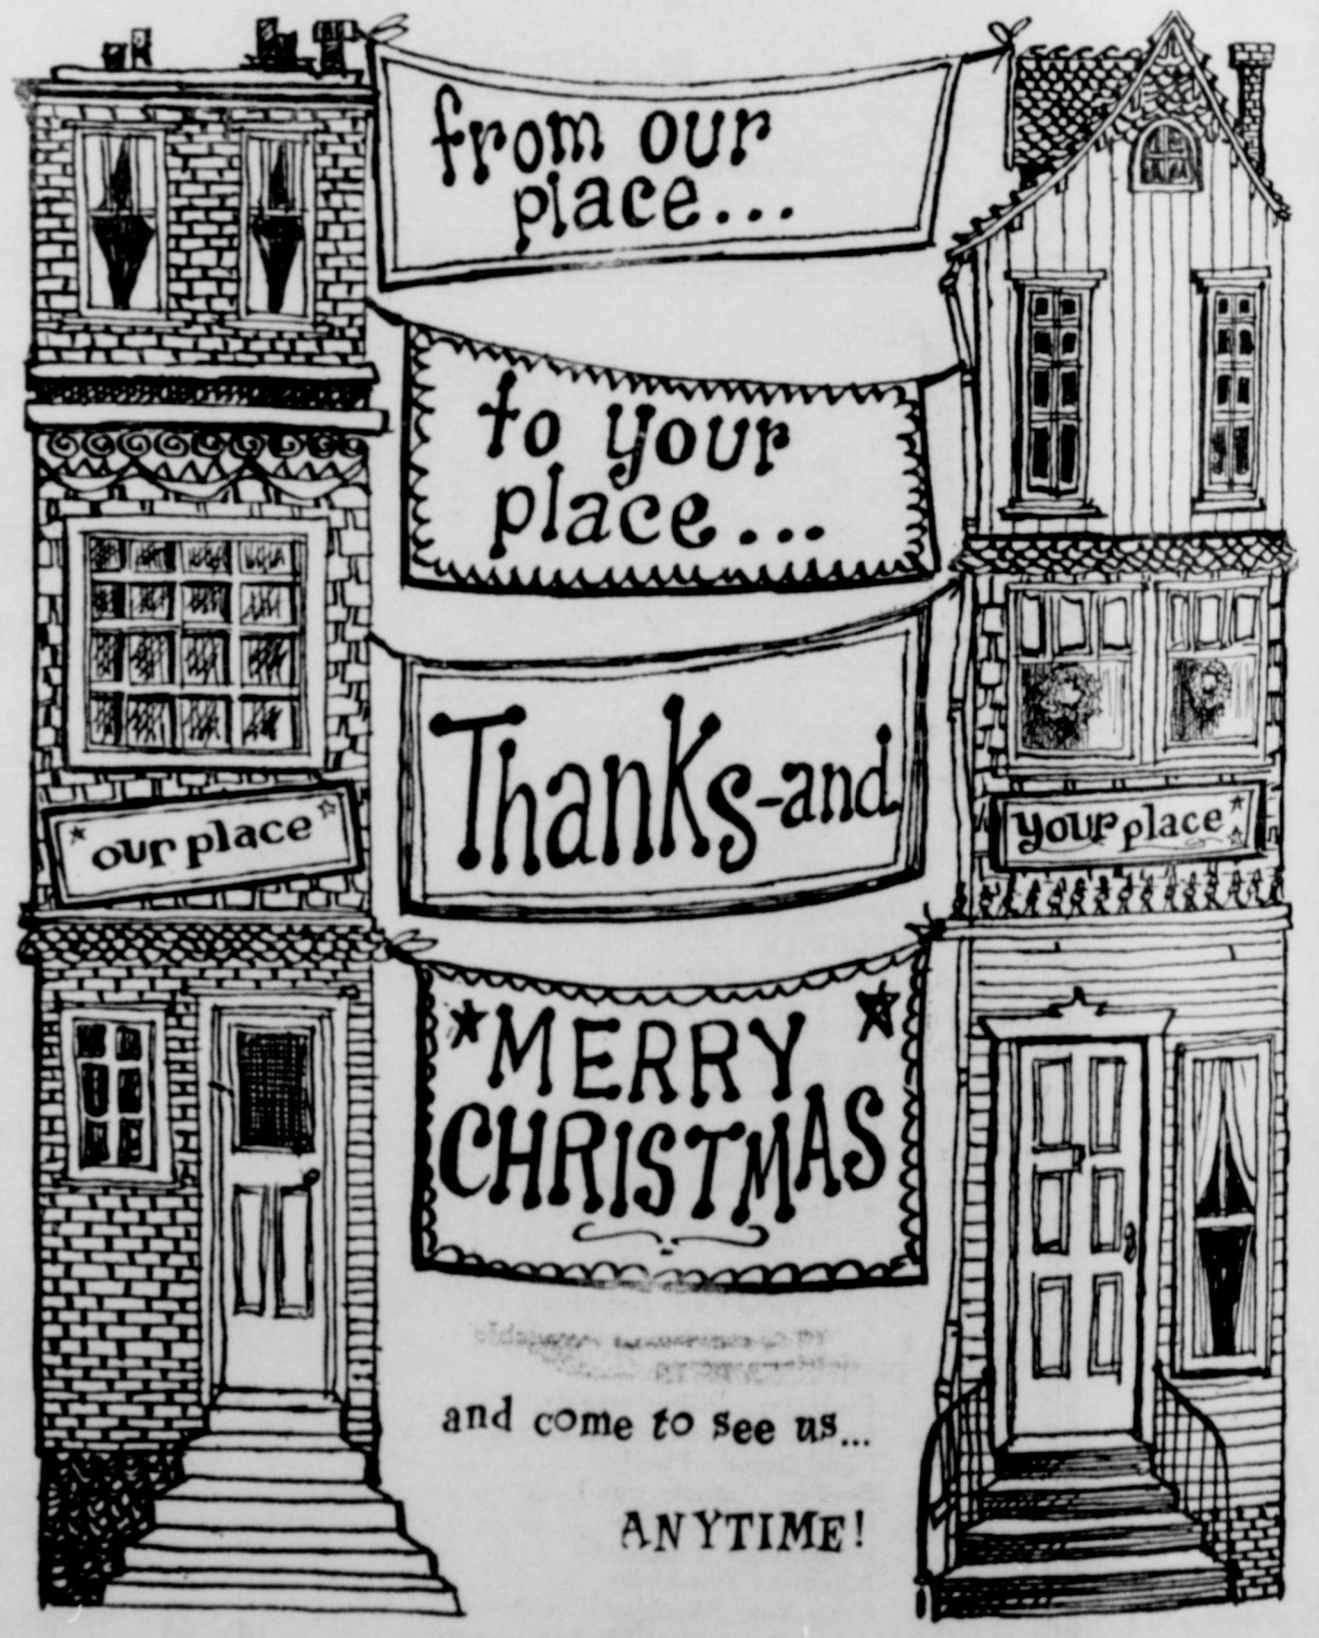 from our
place...
to your
place...
Thanks-and
our place
your place
MERRY
CHRISTMAS
and come to see us...
ANYTIME!